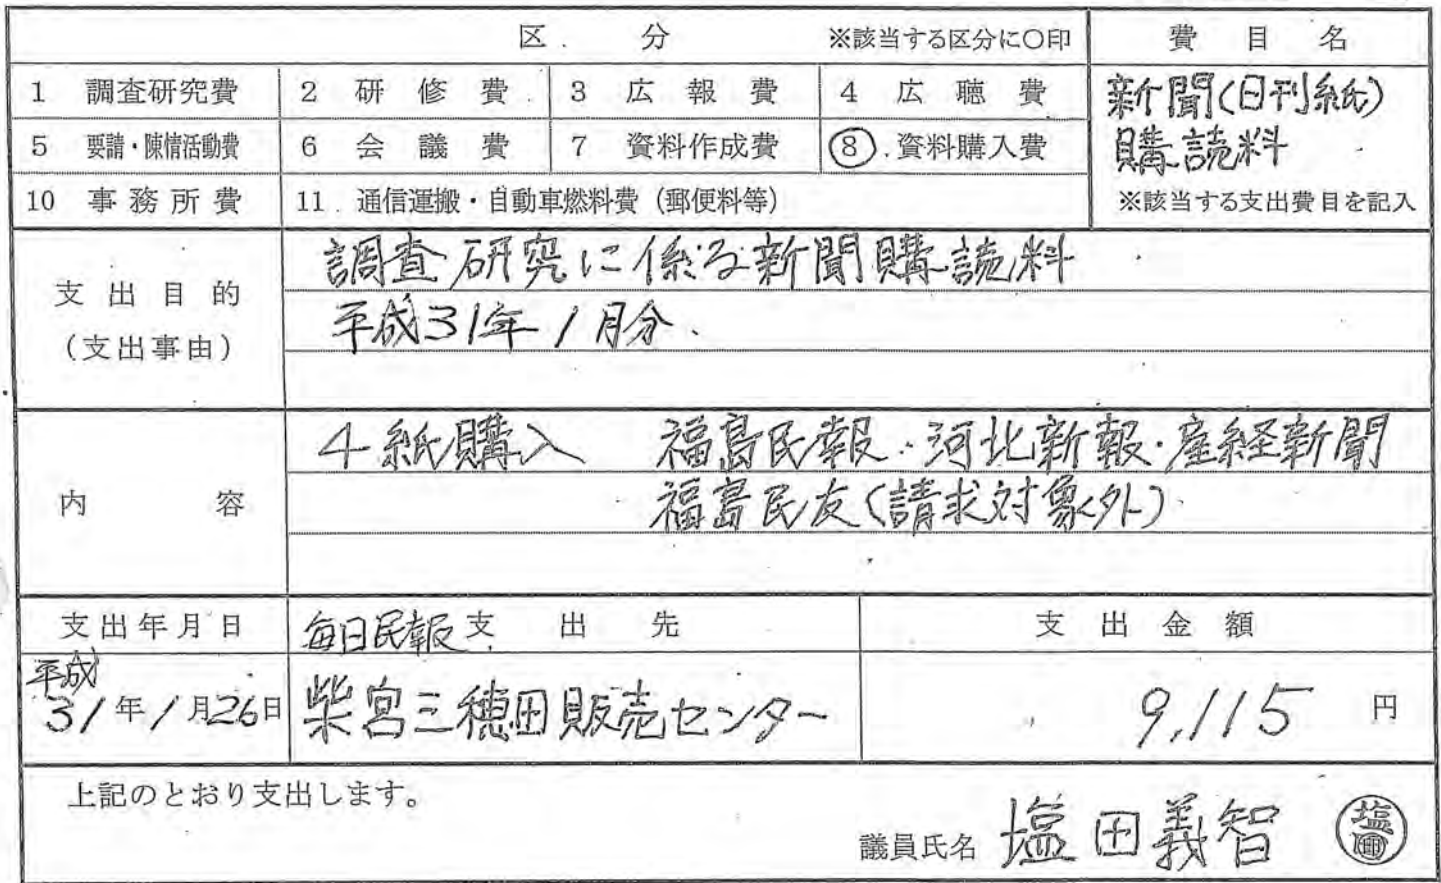 区 分 ※該当する区分に○印 費目名
1 調査研究費 2 研修費 3 広報費 4 広聴費 新聞(日刊紙)
5 要請・陳情活動費 6 会議費 7 資料作成費 8 資料購入費 購読料
10 事務所費 11 通信運搬・自動車燃料費（郵便料等） ※該当する支出費目を記入
支出目的
（支出事由）
調査研究に係る新聞購読料
平成31年1月分
内容
4紙購入 福島民報・河北新報・産経新聞
福島民友(請求対象外)
支出年月日 毎日民報 支出先 支出金額
平成
31年1月26日 柴宮三穂田販売センター 9,115円
上記のとおり支出します。
議員氏名 塩田義智 塩田